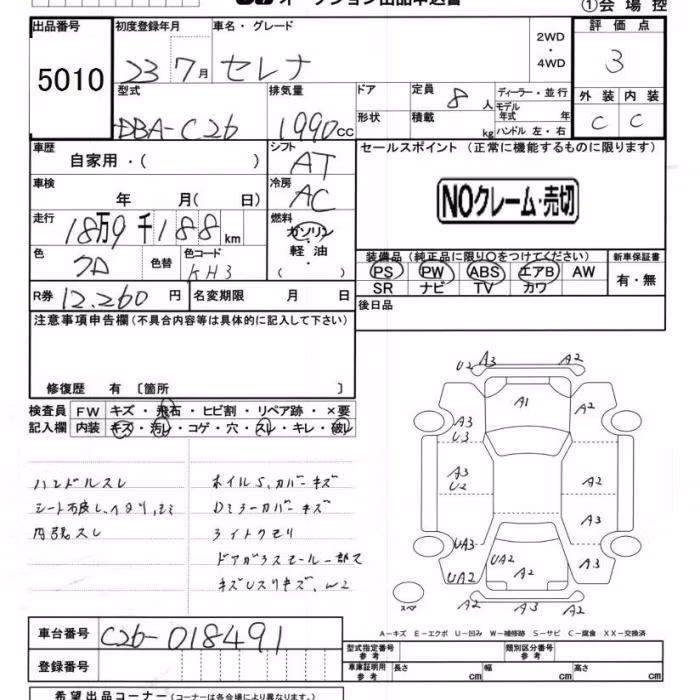 オークション出品申込書
①会場控
出品番号 5010
初度登録年月 23 7月
車名・グレード セレナ
2WD・4WD
評価点 3
型式 DBA-C26
排気量 1990cc
ドア
形状
定員 8人
積載 kg
ディーラー・並行
モデル年式 年
ハンドル 左・右
外装 C
内装 C
車歴 自家用・( )
シフト AT
セールスポイント (正常に機能するものに限ります)
NOクレーム・売切
車検 年 月( 日)
冷房 AC
走行 18万9千188km
燃料 ガソリン 軽油 ・( )
色 クロ
色替
色コード KH3
装備品 (純正品に限り○をつけてください)
PS PW ABS エアB AW
SR ナビ TV カワ
新車保証書 有・無
R券 12,260円
名変期限 月 日
後日品
注意事項申告欄(不具合内容等は具体的に記入して下さい)
修復歴 有〔箇所 〕
検査員記入欄
FW キズ・飛石・ヒビ割・リペア跡・×要
内装 キズ・汚レ・コゲ・穴・スレ・キレ・破レ
ハンドルスレ
内張スレ
ホイルS、カバーキズ
Dミラーカバーキズ
ライトクモリ
ドアガラスモール一部欠
U2 A3 A2
A1
A2
A3
U3
A3
U2
A2
A3
UA3
UA2
UA2
A2
A3
A2 A3 A2
スペア
A-キズ E-エクボ U-凹み W-補修跡 S-サビ C-腐食 XX-交換済
車台番号 C26-018491
登録番号
型式指定番号 参考
類別区分番号 参考
車庫証明用 参考 長さ cm 幅 cm 高さ cm
希望出品コーナー(コーナーは各会場により異なります。)